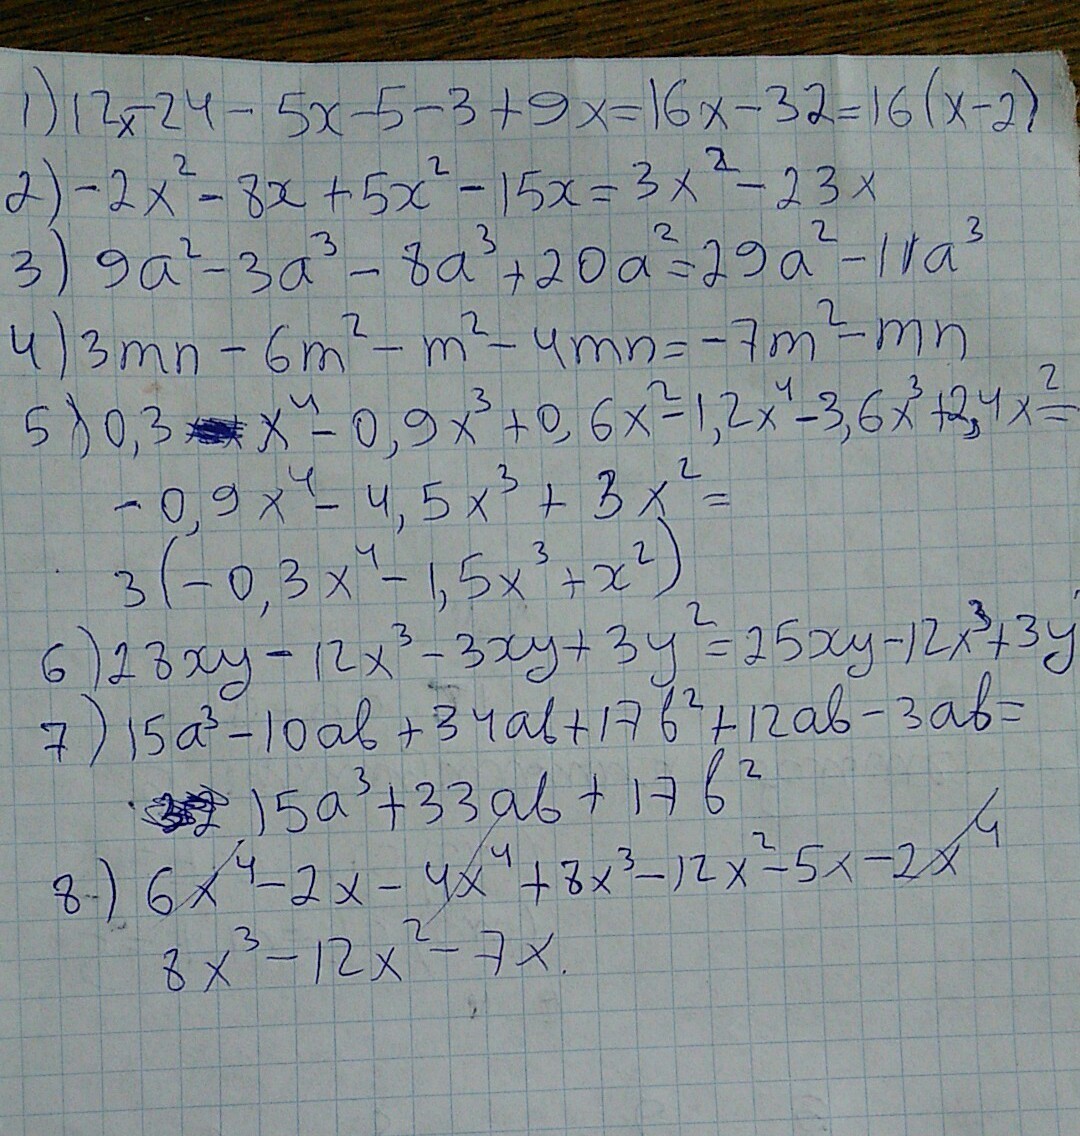 1) 12x-24-5x-5-3+9x=16x-32=16(x-2)
2) -2x²-8x+5x²-15x=3x²-23x
3) 9a²-3a³-8a³+20a²=29a²-11a³
4) 3mn-6m²-m²-4mn=-7m²-mn
5) 0,3 x⁴-0,9x³+0,6x²-1,2x⁴-3,6x³+2,4x²=
-0,9x⁴-4,5x³+3x²=
3(-0,3x⁴-1,5x³+x²)
6) 28xy-12x³-3xy+3y²=25xy-12x³+3y
7) 15a³-10ab+34ab+17b²+12ab-3ab=
15a³+33ab+17b²
8.) 6x⁴-2x-4x⁴+8x³-12x²-5x-2x⁴
8x³-12x²-7x.